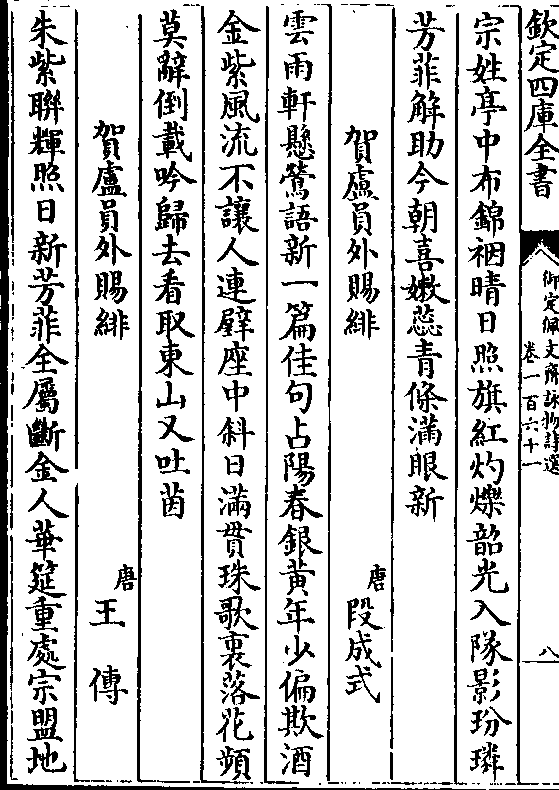 欽定四庫全書
御定佩文齋詠物詩選
卷一百六十一
八
宗姓亭中布錦裀晴日照旗紅灼爍韶光入隊影玢璘
芳菲解助今朝喜嫩蕊青條滿眼新
賀盧員外賜緋
唐
段成式
雲雨軒懸鶯語新一篇佳句占陽春銀黄年少偏欺酒
金紫風流不讓人連璧座中斜日滿貫珠歌裏落花頻
莫辭倒載吟歸去看取東山又吐茵
賀盧員外賜緋
唐
王傳
朱紫聯輝照日新芳菲全屬斷金人華筵重處宗盟地